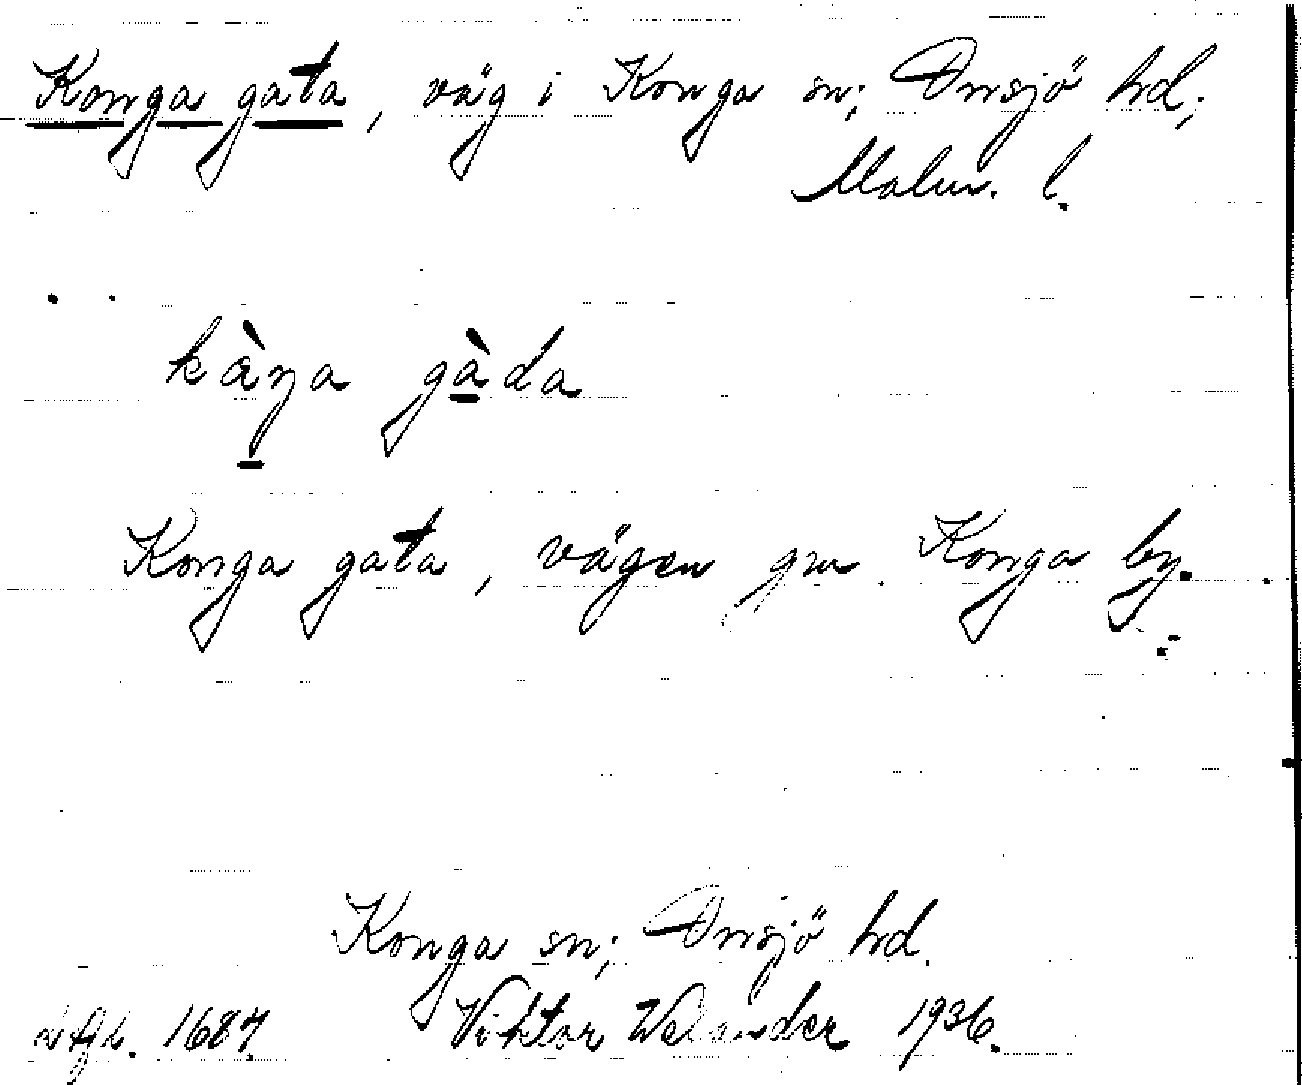 Konga gata, väg i Konga sn; Onsjö hd;
Malm. l.
kàŋa gàda
Konga gata, vägen gm Konga by.
Konga sn; Onsjö hd.
1687 Viktor Welander 1936.